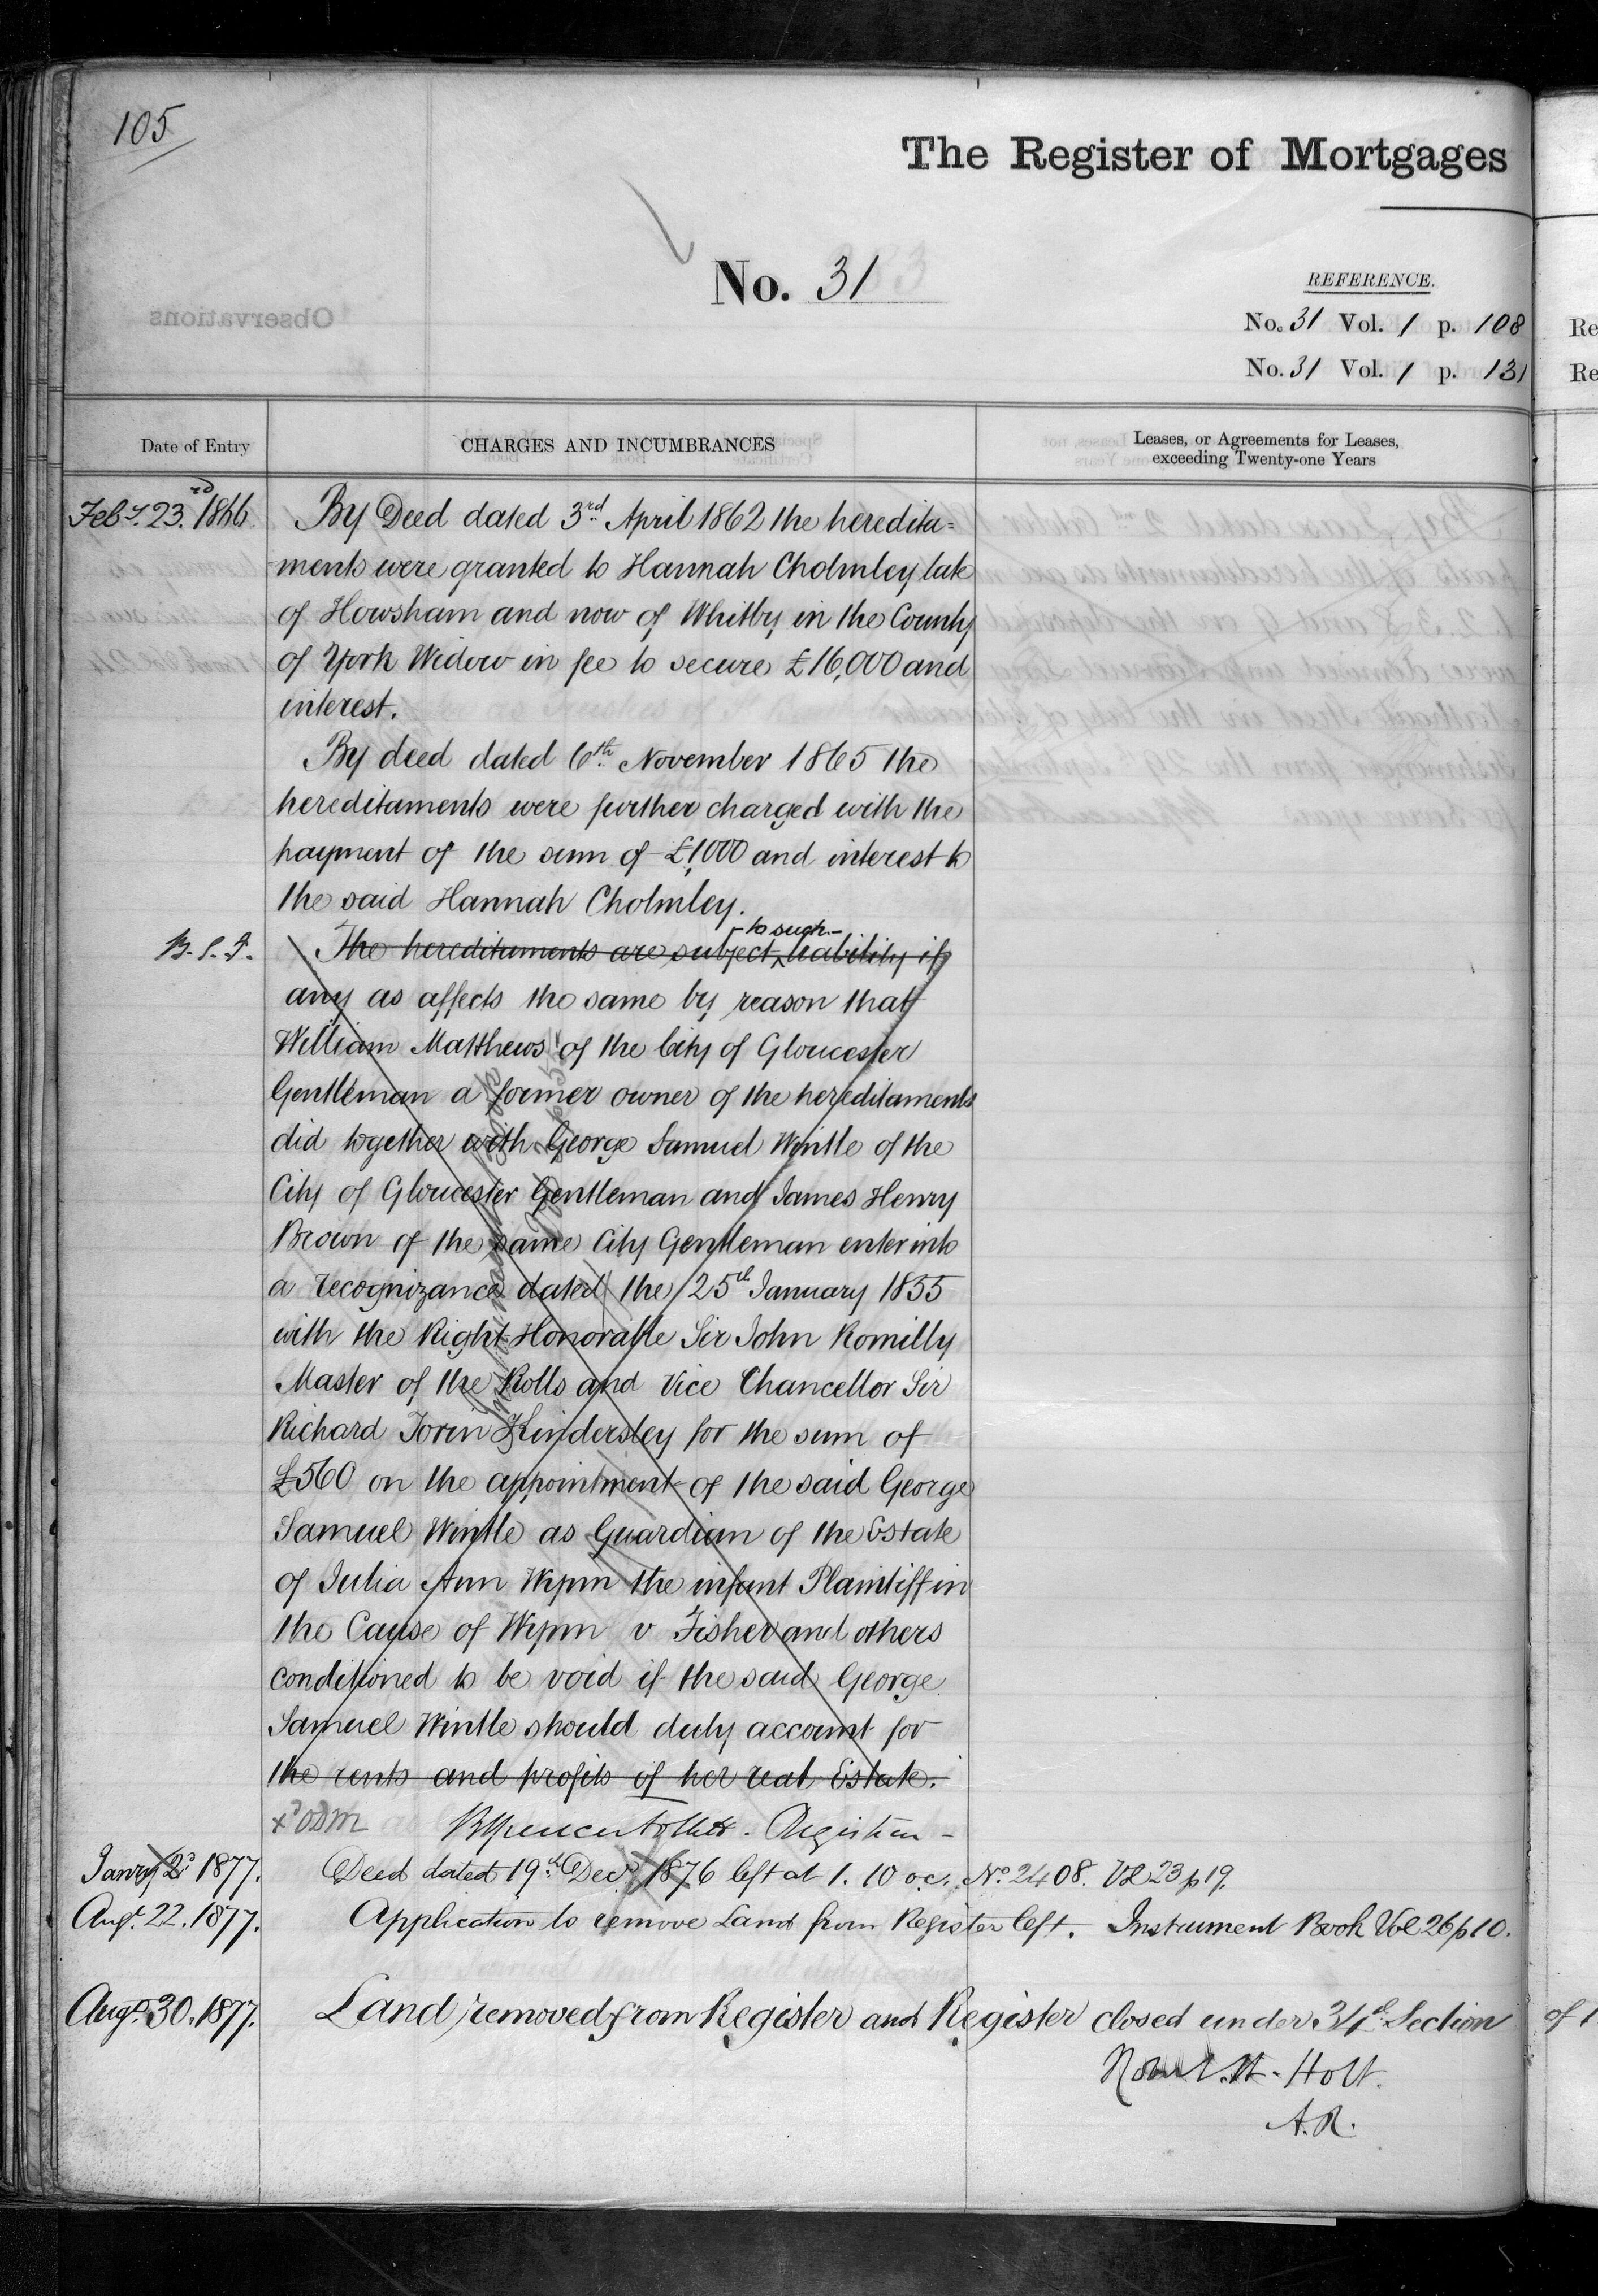 105
The Register of Mortgages
No. 31
REFERENCE.
No. 31 Vol. 1 p. 108
No. 31 Vol. 1 p. 131
Observations
Date of Entry
CHARGES AND INCUMBRANCES
Leases, or Agreements for Leases,
exceeding Twenty-one Years
Feby. 23rd 1866. By Deed dated 3rd April 1862 the heredita=
ments were granted to Hannah Cholmley late
of Howsham and now of Whitby in the County
of York Widow in fee to secure £16,000 and
interest.
By deed dated 6th November 1865 the
hereditaments were further charged with the
payment of the sum of £1,000 and interest to
the said Hannah Cholmley.
B.S.F. The hereditaments are subject to such liability if
any as affects the same by reason that
William Matthews of the City of Gloucester
Gentleman a former owner of the hereditaments
did together with George Samuel Wintle of the
City of Gloucester Gentleman and James Henry
Brown of the same City Gentleman enter into
a recognizance dated the 25th January 1855
with the Right Honorable Sir John Romilly
Master of the Rolls and Vice Chancellor Sir
Richard Torin Kindersley for the sum of
£560 on the appointment of the said George
Samuel Wintle as Guardian of the Estate
of Julia Ann Wynn the infant Plaintiff in
the Cause of Wynn v Fisher and others
conditioned to be void if the said George
Samuel Wintle should duly account for
the rents and profits of her real Estate.
Registrar
Janry 2d 1877. Deed dated 19th Decr 1876 left at 1.10 o.c. No. 2408. Vol 23 p 19.
Augt. 22. 1877. Application to remove Land from Register left. Instrument Book Vol 26 p 10.
Augt. 30. 1877. Land removed from Register and Register closed under 34th Section of
Holt.
A.R.
Re
Re